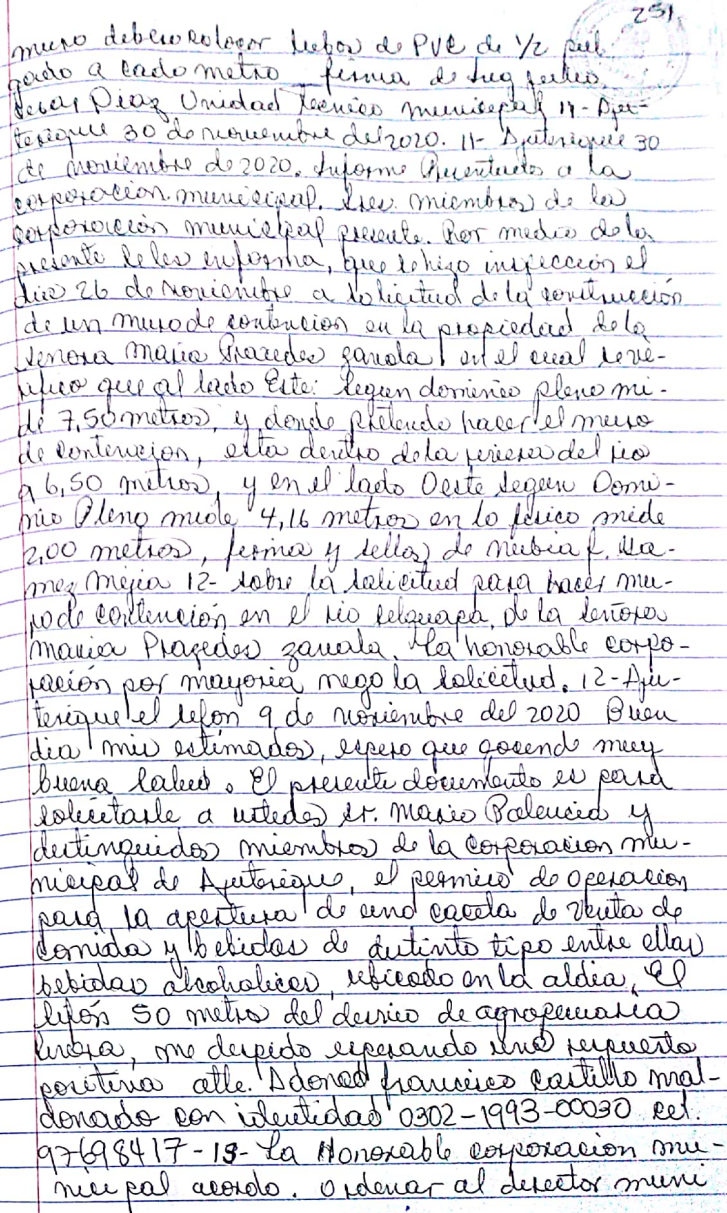 251
muro debera colocar tubos de PVC de 1/2 pul
gada a cada metro firma de Ing Julio
Cesar Diaz Unidad Tecnico municipal 11- Aju-
terique 30 de noviembre del 2020. 11- Ajuterique 30
de noviembre de 2020. Informe Presentado a la
corporación municipal. Sres. miembros de la
corporación municipal presente. Por medio de la
presente se les informa, que se hizo inspección el
dia 26 de noviembre a solicitud de la construcción
de un muro de contencion en la propiedad de la
señora Maria Praxedes zavala en el cual se ve-
rifico que al lado Este: Segun dominio pleno mi-
de 7,50 metros, y donde pretende hacer el muro
de contencion, esta dentro de la rivera del rio
a 6,50 metros, y en el lado Oeste segun Domi-
nio Pleno mide 4,16 metros en lo fisico mide
2,00 metros, firma y sellos de Nubia
mez Mejia 12- sobre la solicitud para hacer mu-
ro de contención en el rio selguapa, de la señora
Maria Praxedes zavala. La honorable corpo-
ración por mayoria nego la solicitud. 12-Aju-
terique el sifon 9 de noviembre del 2020 Buen
dia mis estimados, espero que gocende muy
buena salud. El presente documento es para
solicitarle a ustedes sr. Mario Palencia y
distinguidos miembros de la corporacion mu-
nicipal de Ajuterique, el permiso de operacion
para la apertura de una caceta de venta de
comida y bebidas de distinto tipo entre ellas
bebidas alcoholicas, ubicado en la aldia, El
sifón 50 metros del desvio de agropecuaria
me despido esperando una respuesta
positiva atte. Adonad francisco castillo mal-
donado con identidad 0302-1993-00030 cel.
97698417-13- La Honorable corporacion mu-
nicipal acordo. Ordenar al director muni